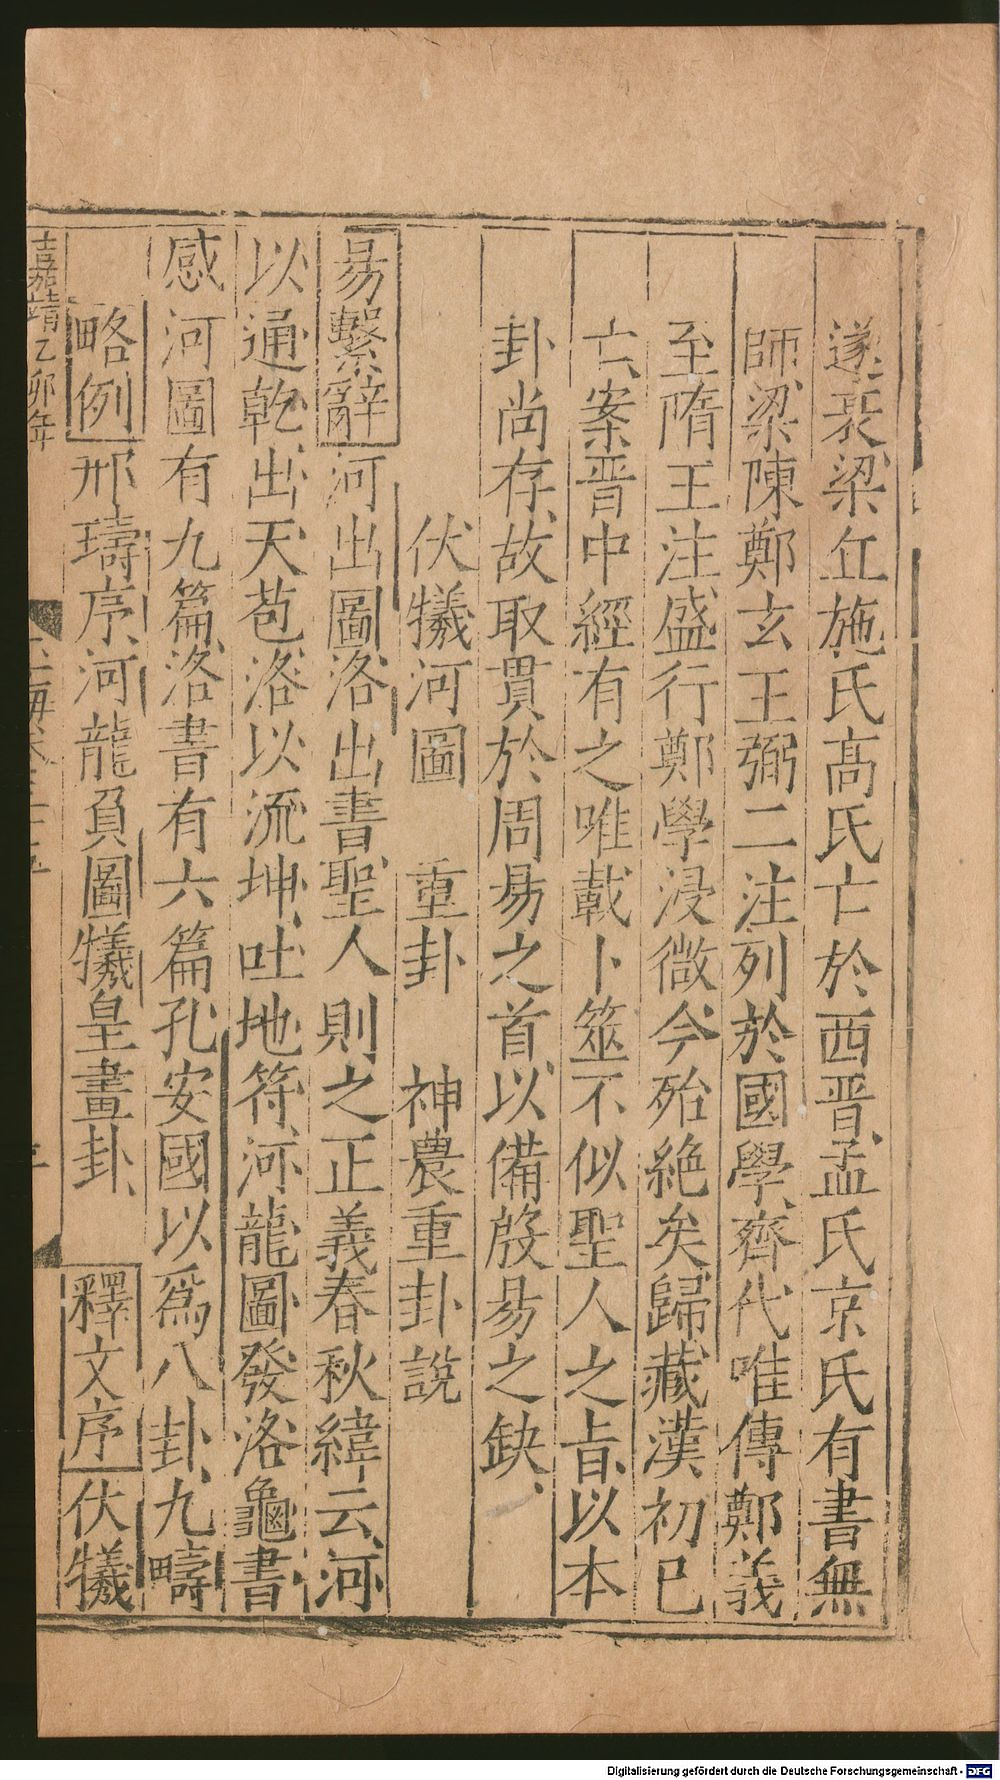 遂衰梁丘施氏高氏亡於西晋孟氏京氏有書無
師梁陳鄭玄王弼二注列於國學齊代唯傳鄭義
至隋王注盛行鄭學浸微今殆絶矣歸藏漢初已
亡案晋中經有之唯載卜筮不似聖人之旨以本
卦尚存故取貫於周易之首以備殷易之缺、
伏犧河圖　重卦　神農重卦說
易繫辭河出圖洛出書聖人則之正義春秋緯云河
以通乾出天苞洛以流坤吐地符河龍圖發洛龜書
感河圖有九篇洛書有六篇孔安國以爲八卦九疇
略例邢璹序河龍負圖犧皇畫卦、釋文序伏犧
嘉靖乙卯年
玉海卷三十五
Digitalisierung gefördert durch die Deutsche Forschungsgemeinschaft - DFG